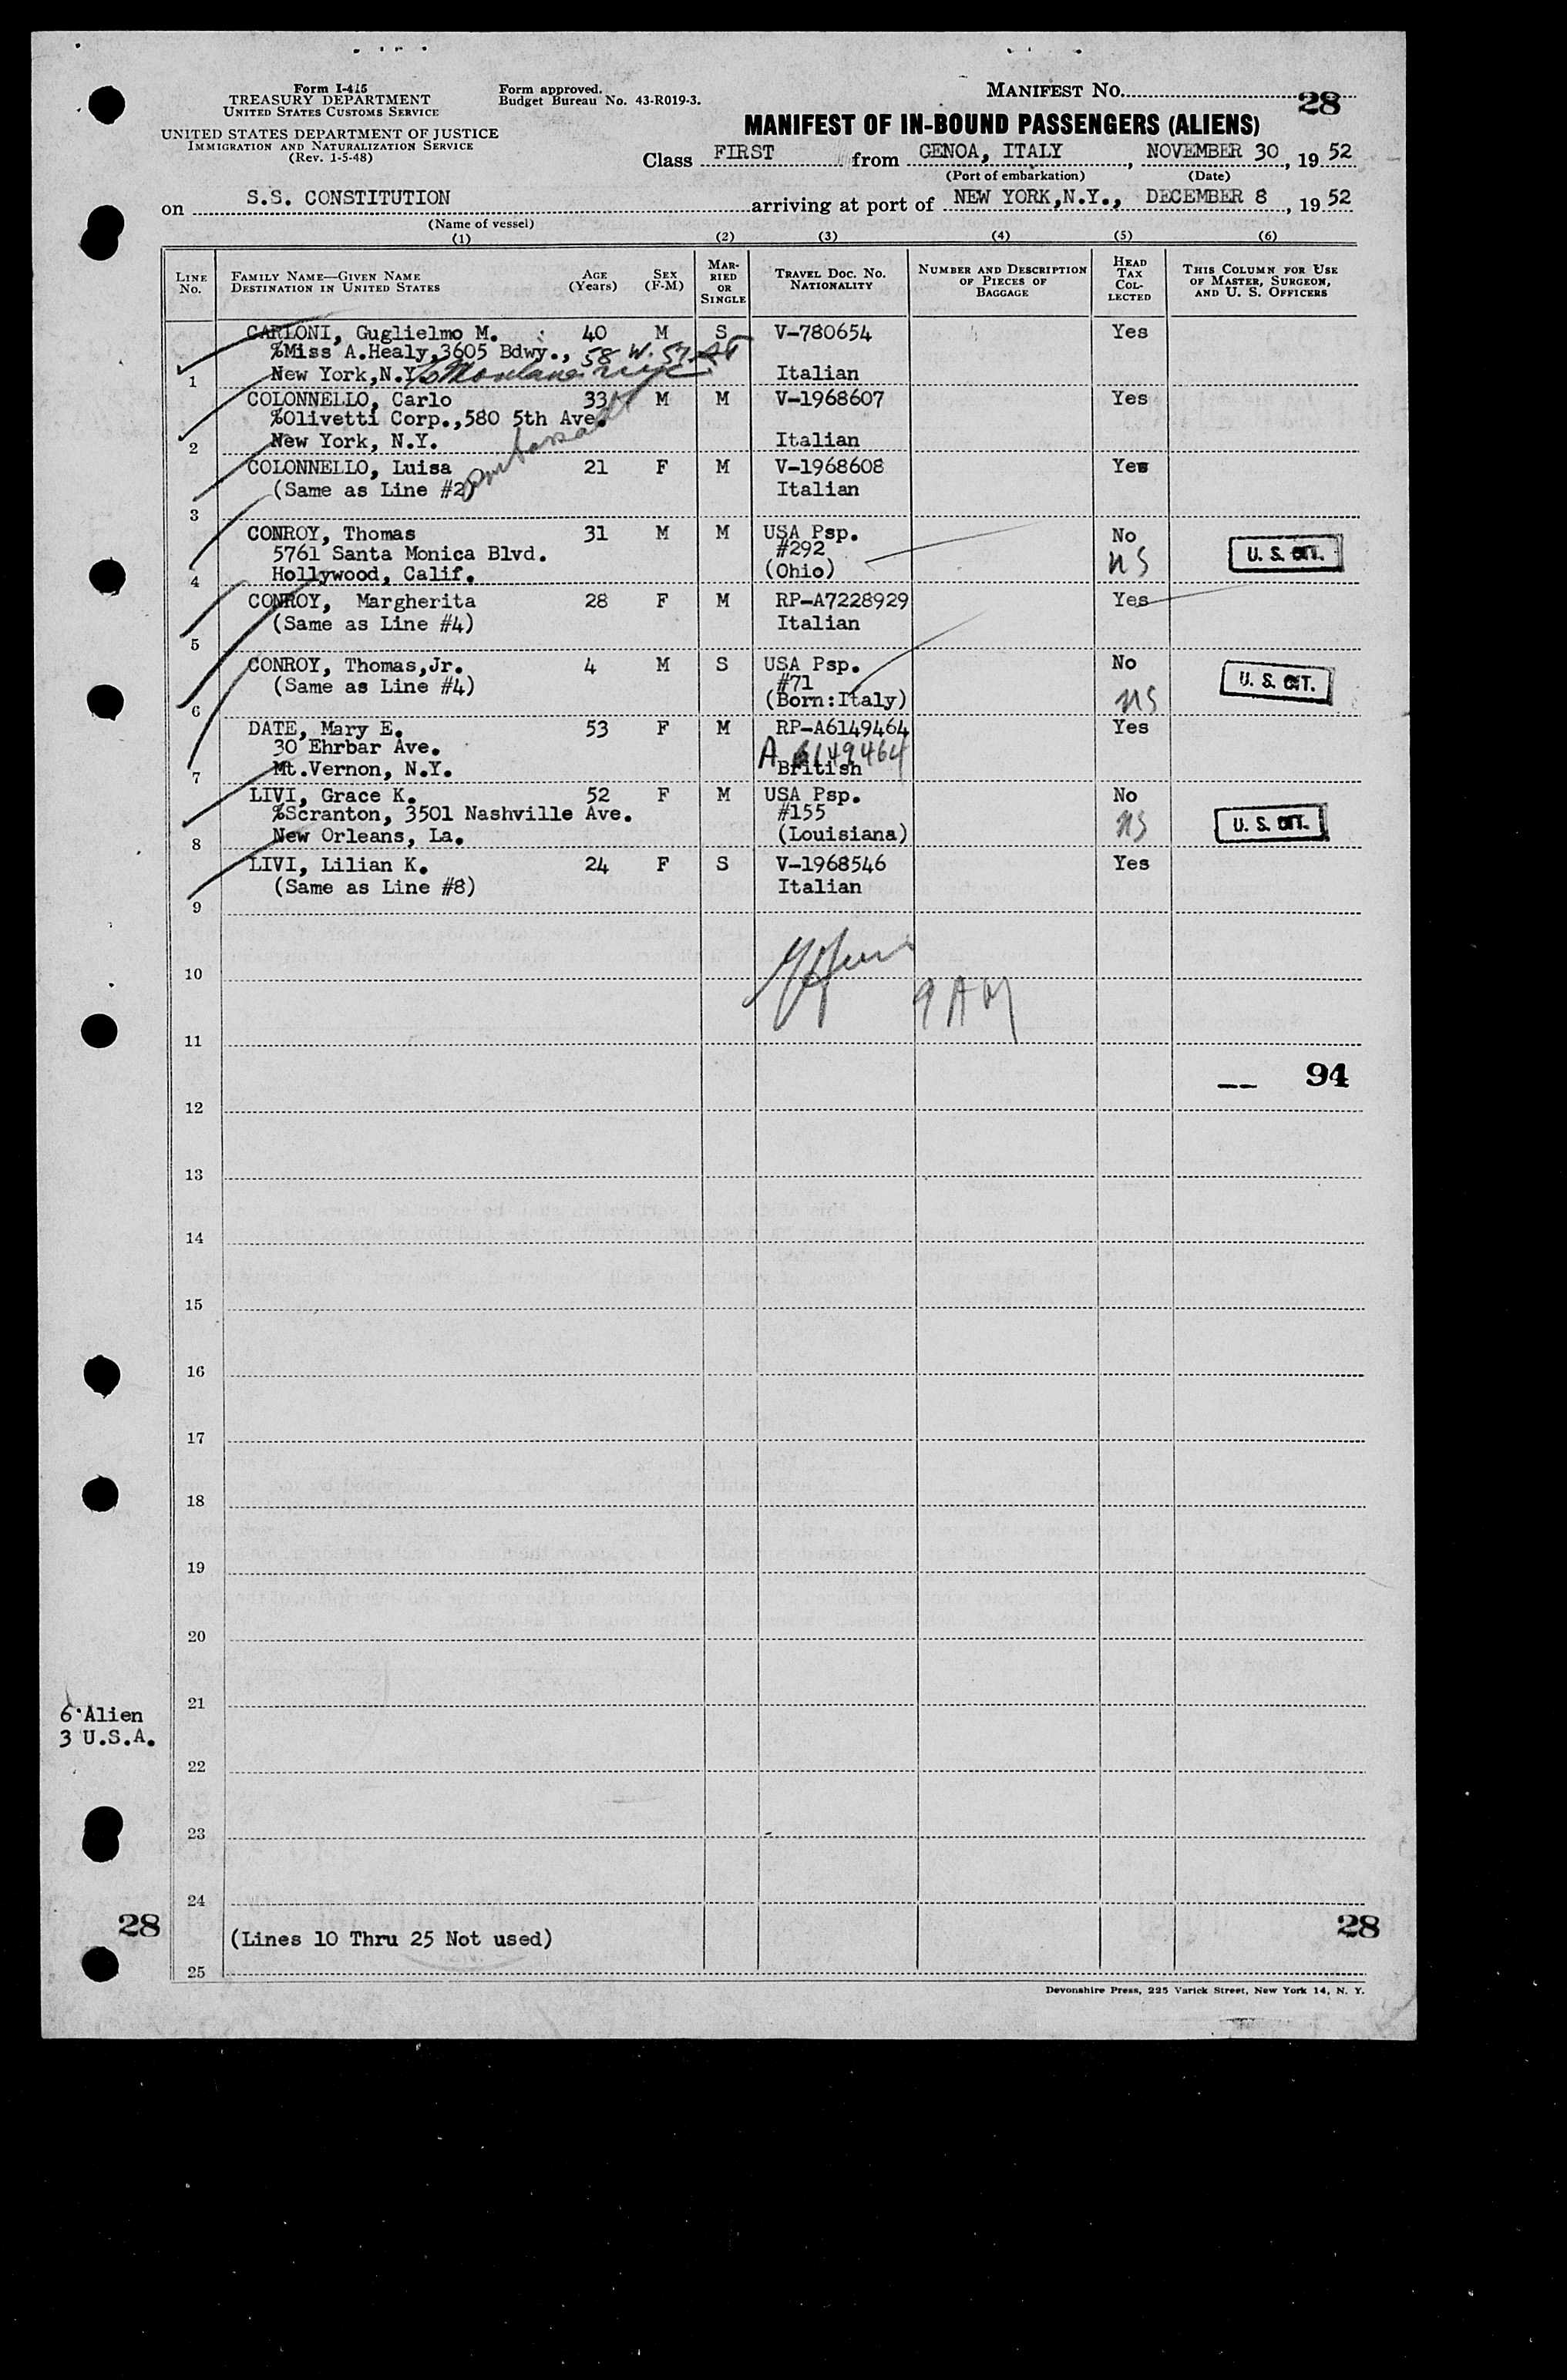 Form I-415
TREASURY DEPARTMENT
UNITED STATES CUSTOMS SERVICE
UNITED STATES DEPARTMENT OF JUSTICE
IMMIGRATION AND NATURALIZATION SERVICE
(Rev. 1-5-48)
Form approved.
Budget Bureau No. 43-R019-3.
MANIFEST NO. 28
MANIFEST OF IN-BOUND PASSENGERS (ALIENS)
Class FIRST from GENOA, ITALY, NOVEMBER 30, 19 52
(Port of embarkation) (Date)
on S.S. CONSTITUTION arriving at port of NEW YORK,N.Y., DECEMBER 8, 19 52
(Name of vessel)
(1) (2) (3) (4) (5) (6)
LINE NO. FAMILY NAME—GIVEN NAME DESTINATION IN UNITED STATES AGE (Years) SEX (F-M) MARRIED OR SINGLE TRAVEL DOC. NO. NATIONALITY NUMBER AND DESCRIPTION OF PIECES OF BAGGAGE HEAD TAX COLLECTED THIS COLUMN FOR USE OF MASTER, SURGEON, AND U. S. OFFICERS
CARLONI, Guglielmo M. 40 M S V-780654 Yes
%Miss A.Healy,3605 Bdwy., 58 W. 57 St
1 New York,N.Y. Italian
COLONNELLO, Carlo 33 M M V-1968607 Yes
%Olivetti Corp.,580 5th Ave.
2 New York, N.Y. Italian
COLONNELLO, Luisa 21 F M V-1968608 Yes
(Same as Line #2) Italian
3
CONROY, Thomas 31 M M USA Psp. No
5761 Santa Monica Blvd. #292 NS U. S. CIT.
4 Hollywood, Calif. (Ohio)
CONROY, Margherita 28 F M RP-A7228929 Yes
(Same as Line #4) Italian
5
CONROY, Thomas,Jr. 4 M S USA Psp. No
(Same as Line #4) #71 U. S. CIT.
6 (Born:Italy) NS
DATE, Mary E. 53 F M RP-A6149464 Yes
30 Ehrbar Ave. A 6149464
7 Mt.Vernon, N.Y. British
LIVI, Grace K. 52 F M USA Psp. No
%Scranton, 3501 Nashville Ave. #155 NS U. S. CIT.
8 New Orleans, La. (Louisiana)
LIVI, Lilian K. 24 F S V-1968546 Yes
(Same as Line #8) Italian
9
10
9 AM
11
94
12
13
14
15
16
17
18
19
20
21
6 Alien
3 U.S.A.
22
23
24
28 (Lines 10 Thru 25 Not used) 28
25
Devonshire Press, 225 Varick Street, New York 14, N. Y.